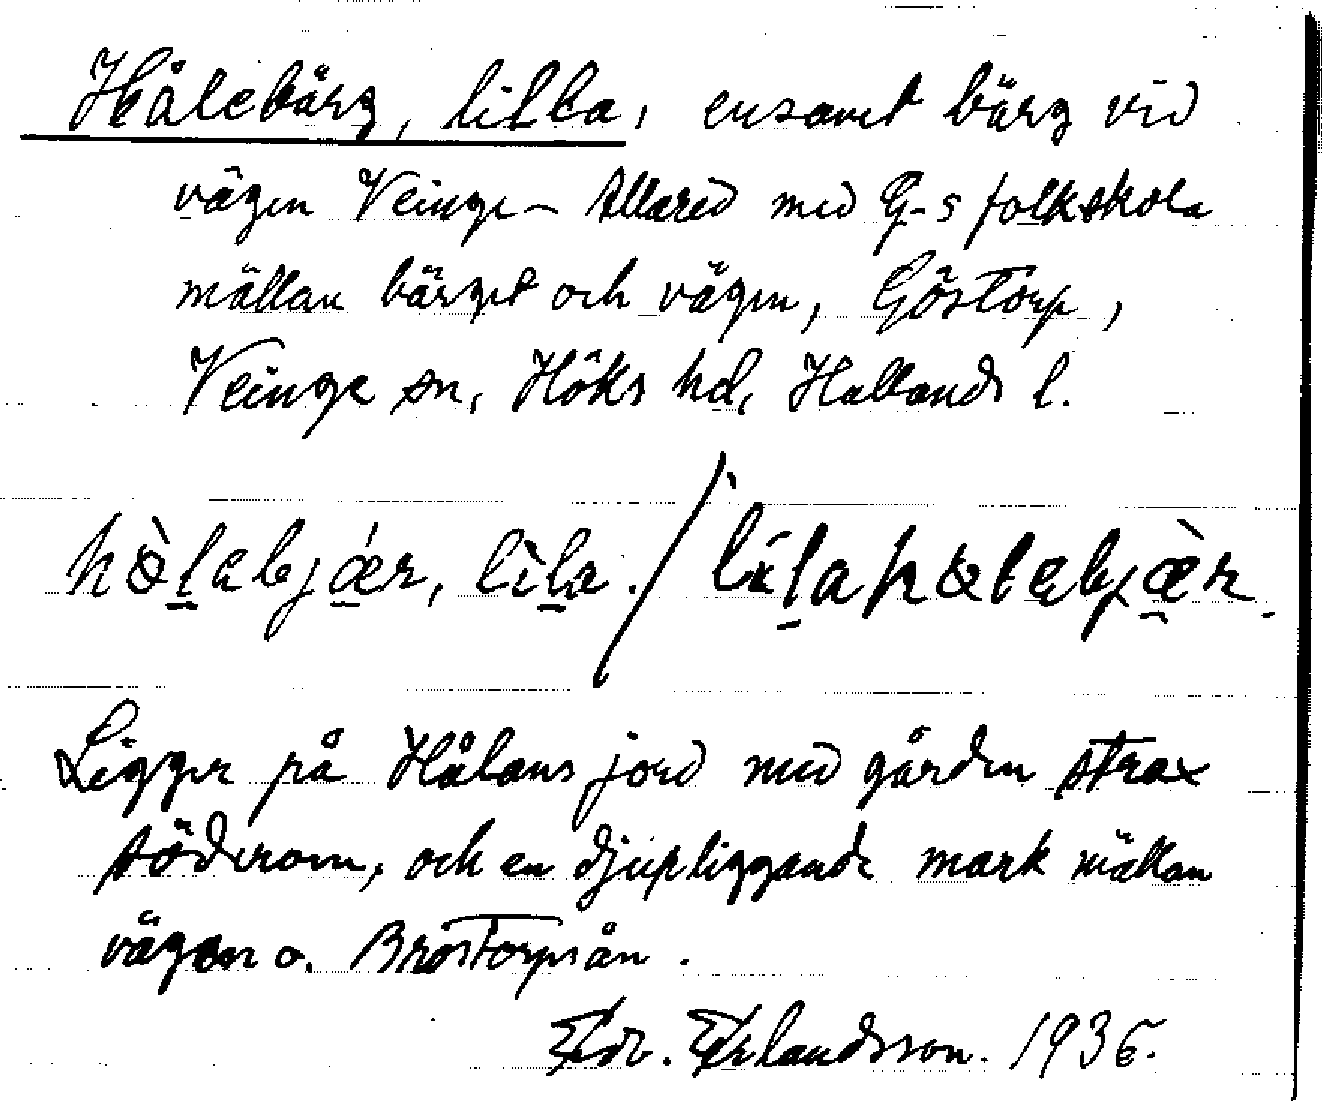 Hålebärg, lilla, ensamt bärg vid
vägen Veinge – Allared med G-s folkskola
mällan bärget och vägen, Göstorp,
Veinge sn, Höks hd, Hallands l.
hɵ̀lebjǽr, lìla. / lílahɵlebjæ̀r.
Ligger på Hålans jord med gården strax
söderom, och en djupliggande mark mällan
vägen o. Bröstorpsån.
Edv. Erlandsson. 1936.